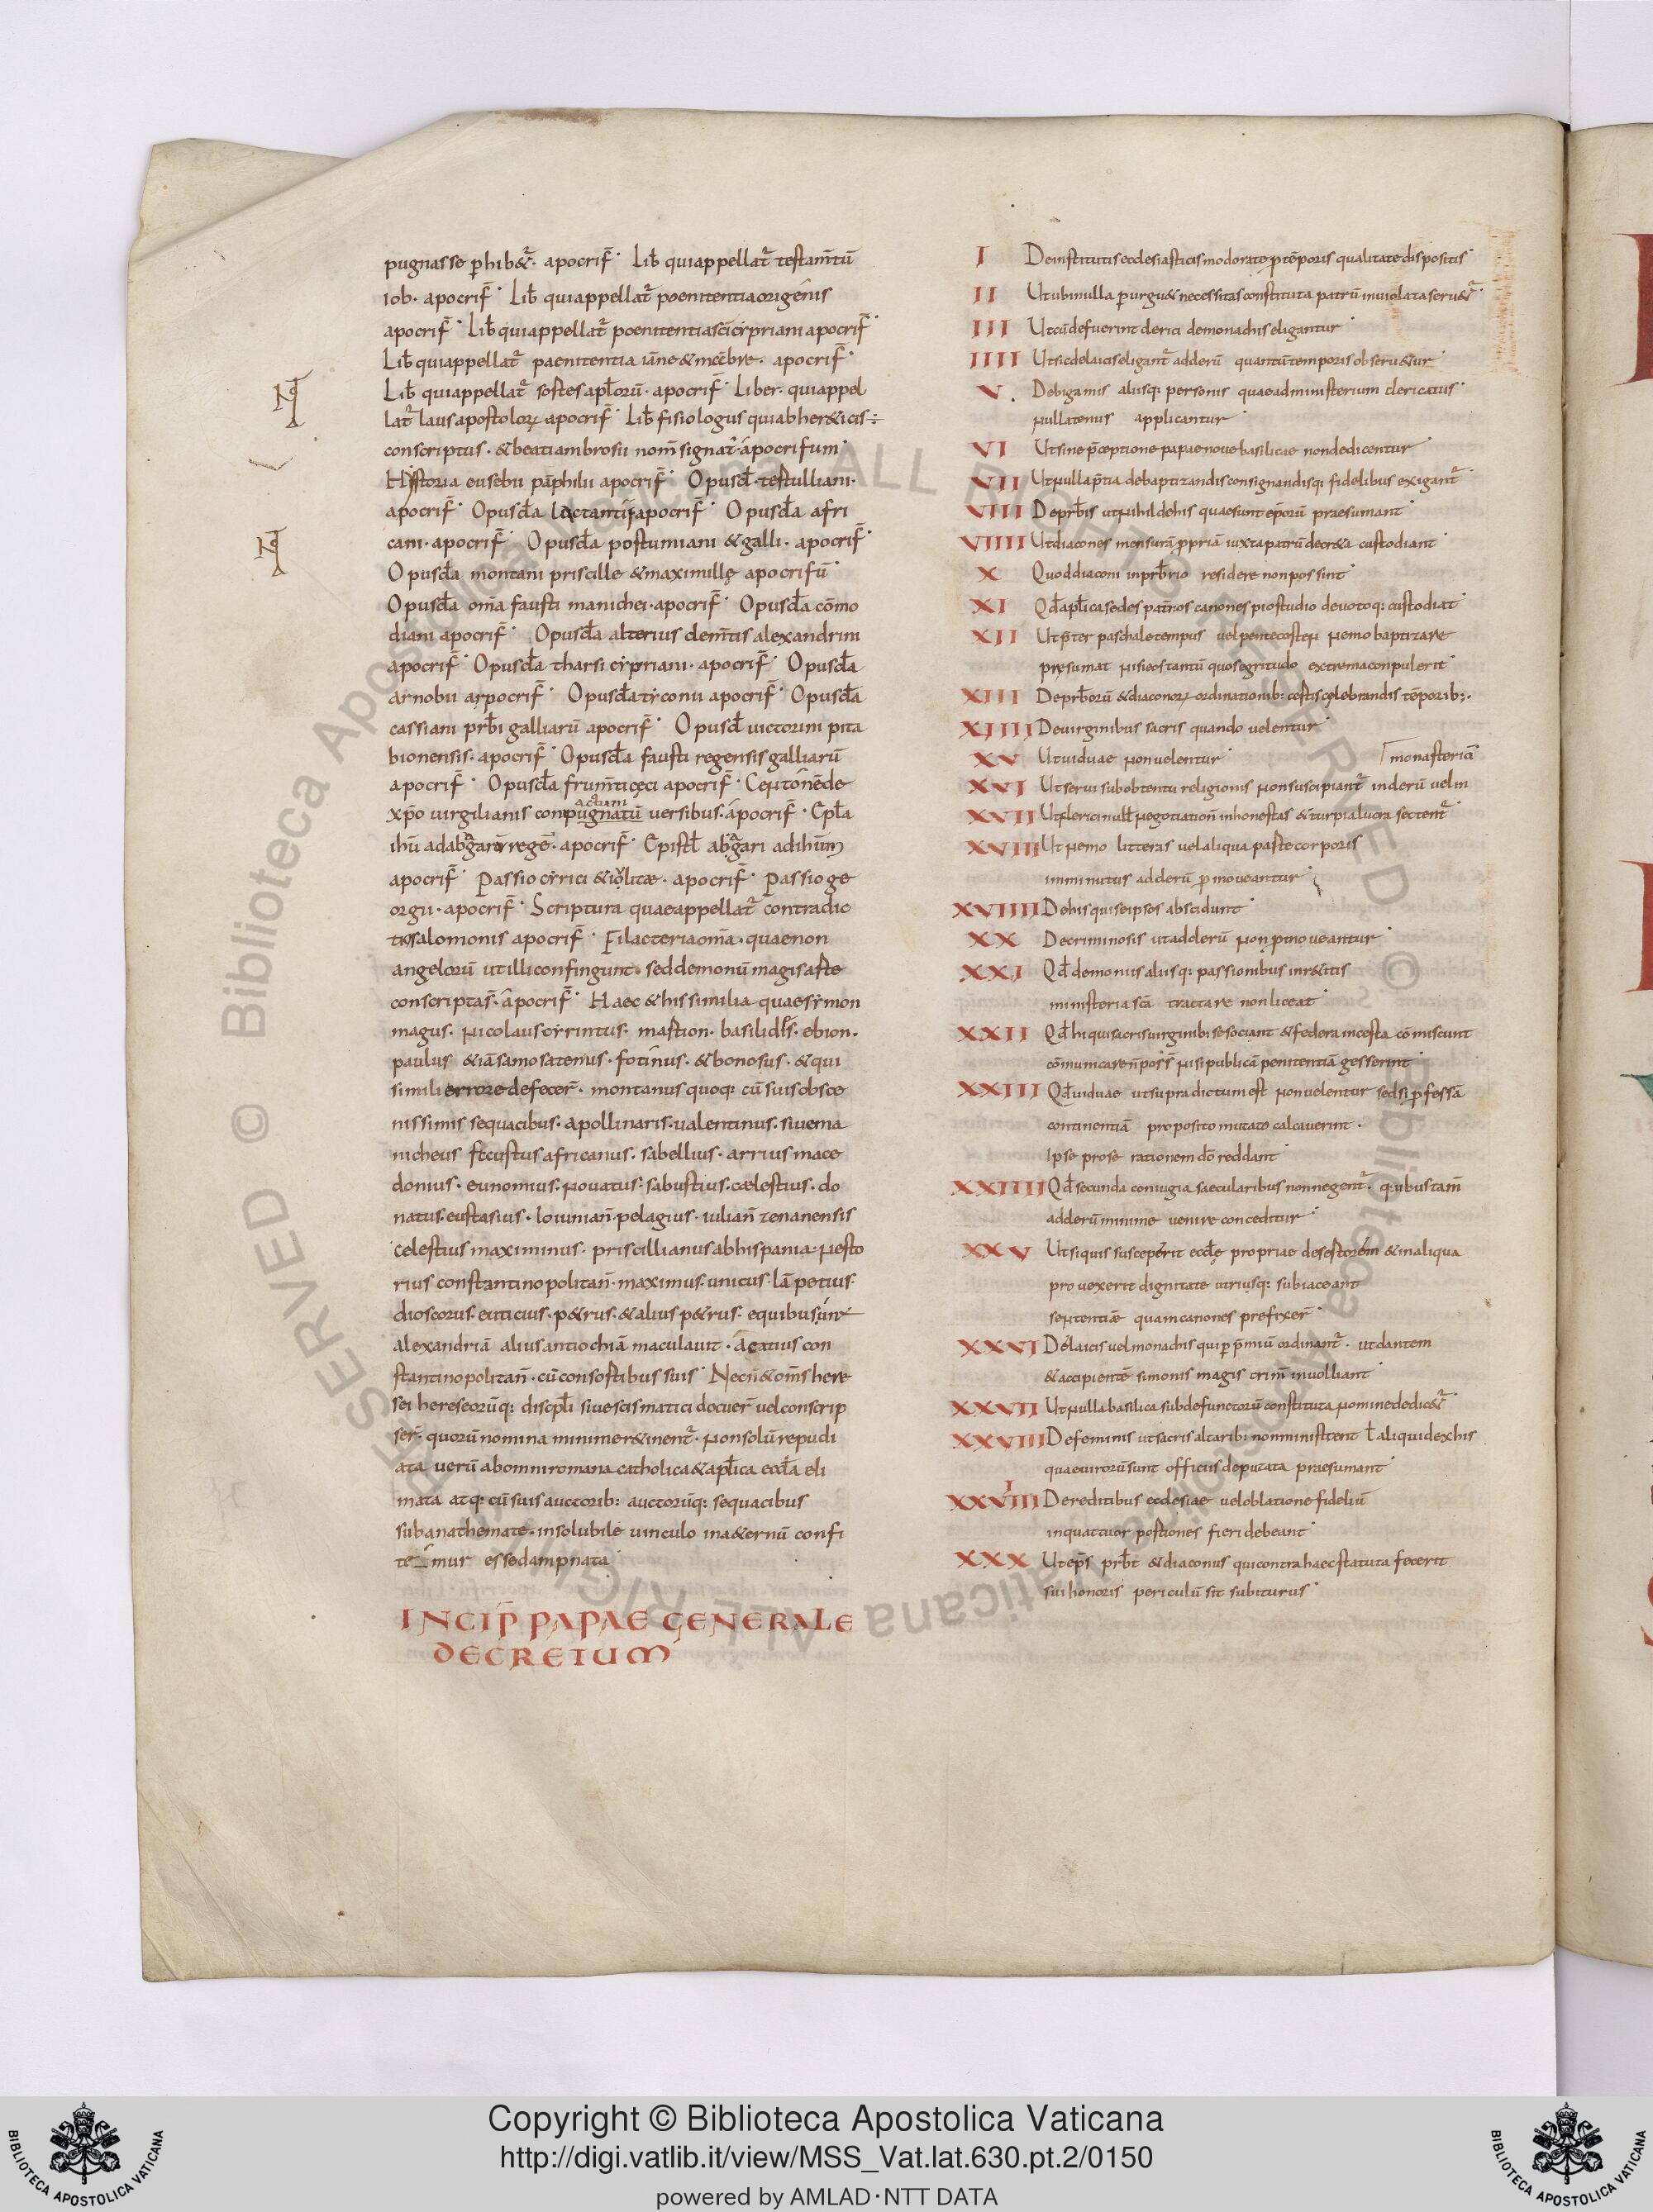 pugnasse ꝑhib&ᷣ· apocrif̄· Lib̄ qui appellat᷑ testam̄tū
iob· apocrif̄· Lib̄ qui appellat᷑ poenitentia origenis
apocrif̄· Lib̄ qui appellat᷑ poenitentia sc̄i cẏpriani apocrif̄·
Lib̄ qui appellat᷑ paenitentia iāne & mēbre· apocrif̄·
Lib̄ qui appellat᷑ sortes apl̄orū· apocrif̄· Liber· qui appel
lat᷑ laus apostoloꝝ apocrif̄· Lib̄ fisiologus qui ab her&icis
conscriptus· & beati ambrosii nom̄ signat᷑· apocrifum·
Historia eusebii pāphilii apocrif̄· Opusc̄l· tertulliani·
apocrif̄· Opusc̄la lactantii apocrif̄· Opusc̄la afri
cani· apocrif̄· Opusc̄la postumiani & galli· apocrif̄·
Opusc̄la montani priscille & maximillę apocrifū·
Opusc̄la om̄a fausti manichei· apocrif̄· Opusc̄la cōmo
diani apocrif̄· Opusc̄la alterius clem̄tis alexandrini
apocrif̄· Opusc̄la tharsi cẏpriani· apocrif̄· Opusc̄la
arnobii apocrif̄· Opusc̄la tẏconii apocrif̄· Opusc̄la
cassiani prb̄i galliarū apocrif̄· Opusc̄l uictorini pita
bionensis· apocrif̄· Opusc̄la fausti regensis galliarū
apocrif̄· Opusc̄la frum̄ti cęci apocrif̄· Centonē de
xp̄o uirgilianis conpugnatū versibus· apocrif̄· Epl̄a
actum
ihū ad abgarū regē· apocrif̄· Epistl̄ abgari ad ihūm
apocrif̄· Passio cẏrici & iolitae· apocrif̄· Passio ge
orgii· apocrif̄· Scriptura quae appellat᷑ contradic
tio salomonis apocrif̄· Filacteria om̄a· quae non
angelorū ut illi confingunt· sed demonū magis arte
conscriptas̄· apocrif̄· Haec & his similia quae sẏmon
magus· nicolaus cẏrintus· martion· basilidis· ebion·
paulus &iā samosatenus· fotinus· & bonosus· & qui
simili errore defecer̄· montanus quoq: cū suis obsce
nissimis sequacibus· apollinaris· ualentinus· siue ma
nicheus faustus africanus· sabellius· arrius mace
donius· eunomius· nouatus· sabustius· caelestius· do
natus· eustasius· iouinian̄· pelagius· iulian̄ zenanensis
celestius maximinus· priscillianus ab hispania· nesto
rius constantinopolitan̄· maximus· unicus· lāpetius·
dioscorus· euticius· p&rus· & alius p&rus· e quibus un᷒
alexandriā alius antiochiā maculauit· acatius con
stantinopolitan̄· cū consortibus suis· Necn̄ & om̄s here
sei hereseorūq: discipl̄i siue scismatici docuer̄ uel conscrip
ser̄· quorū nomina minime r&inent᷑· non solū repudi
ata uerū ab omni romana catholica & apl̄ica eccl̄a eli
mata atq: cū suis auctorib: auctorūq: sequacibus
sub anathemate· insolubile uinculo in a&ernū confi
temur esse dampnata·
INCIP̄ PAPAE GENERALE
DECRETUM
I De institutis ecclesiasticis moderate ꝓ tēporis qualitate dispositis·
II Ut ubi nulla ꝑurgu& necessitas constituta patrū inuiolata seru&ᷣ·
III Ut cū defuerint clerici de monachis eligantur·
IIII Ut sic de laicis eligant᷑ ad clerū quantū temporis obseru&ur·
V· De bigamis aliisq: personis quae ad ministerium clericatus·
nullatenus applicantur·
VI Ut sine p̄ceptione papae noue basilicae non dedicentur·
VII Ut nulla p̄tia de baptizandis consignandisq: fidelibus exigant᷑·
VIII De prb̄is ut nihil de his quae sunt ep̄orū praesumant·
VIIII Ut diacones mensurā ꝓpriā iuxta patrū decr&a custodiant·
X Quod diaconi in prb̄rio residere non possint·
XI Qd̄ apl̄ica sedes pat̄nos canones pio studio deuotoq: custodiat·
XII Ut p̄ter paschale tempus uel pentecosten nemo baptizare
presumat nisi eos tantū quos egritudo extrema conpulerit·
XIII De prb̄orū & diaconoꝝ ordinationib: certis celebrandis tēporib:·
XIIII De uirginibus sacris quando uelentur·
XV Ut uiduae non uelentur·
monasteriā
XVI Ut serui sub obtentu religionis non suscipiant᷑ in clerū uel in
XVII Ut clerici null̄ negotiation̄ inhonestas & turpia lucra sectent᷑·
XVIII Ut nemo litteras uel aliqua parte corporis
imminutus ad clerū ꝓmoueantur·
XVIIII De his qui seipsos abscidunt·
XX De criminosis ut ad clerū non ꝓmoueantur·
XXI Qd̄ demoniis aliisq: passionibus inr&itis
ministeria sc̄a tractare non liceat·
XXII Qd̄ hi qui sacris uirginib: se sociant & federa incesta cōmiscunt
cōmunicare n̄ poss̄ nisi publicā penitentiā gesserint·
XXIII Qd̄ uiduae ut supra dictum est non uelentur sed si ꝓfessā
continentiā proposito mutato calcauerint·
Ipse pro se rationem dō reddant·
XXIIII Qd̄ secunda coniugia saecularibus non negent᷑· q:ibus tam̄
ad clerū minime uenire conceditur·
XXV Ut si quis susceperit eccl̄ę propriae desertorem & in aliqua
prouexerit dignitate utriusq: subiaceant
sententiae quam canones prefixer̄·
XXVI De laicis uel monachis qui ꝑ p̄miū ordinant᷑· ut dantem
& accipientē simonis magis crim̄ inuolliant·
XXVII Ut nulla basilica sub defunctorū constituta nomine dedic&ᷣ
XXVIII De feminis ut sacris altarib: non ministrent ł aliquid ex his
quae uirorū sunt officiis deputata praesumant·
XXVIIII De reditibus ecclesiae uel oblatione fideliū
in quattuor portiones fieri debeant·
XXX Ut ep̄s prb̄t & diaconus qui contra haec statuta fecerit
sui honoris periculū sit subiturus·
Copyright © Biblioteca Apostolica Vaticana
http://digi.vatlib.it/view/MSS_Vat.lat.630.pt.2/0150
powered by AMLAD·NTT DATA
BIBLIOTECA APOSTOLICA VATICANA
BIBLIOTECA APOSTOLICA VATICANA